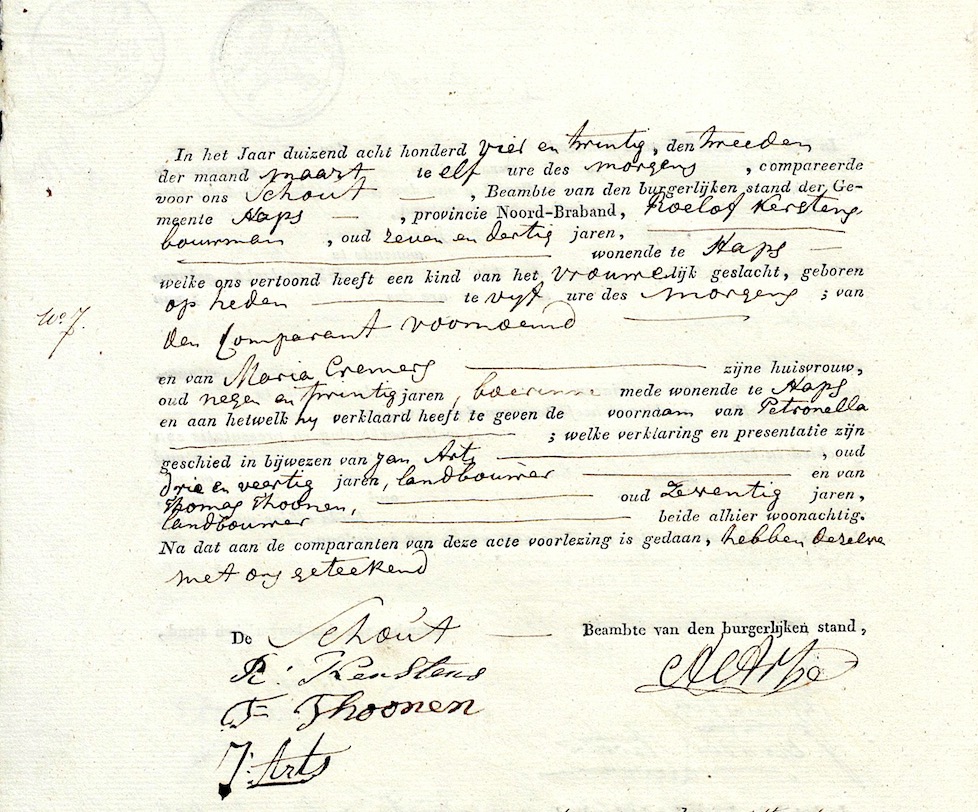 In het Jaar duizend acht honderd vier en twintig, den tweeden
der maand maart te elf ure des morgens, compareerde
voor ons Schout, Beambte van den burgerlijken stand der Ge-
meente Haps, provincie Noord-Braband, Roelof Kerstens,
bouwman, oud zeven en dertig jaren,
wonende te Haps
welke ons vertoond heeft een kind van het vrouwelijk geslacht, geboren
op heden te vyf ure des morgens; van
No 7.
den Comparant voornoemd
en van Maria Cremers zijne huisvrouw,
oud negen en twintig jaren, boerinne mede wonende te Haps
en aan hetwelk hy verklaard heeft te geven de voornaam van Petronella
; welke verklaring en presentatie zijn
geschied in bijwezen van Jan Arts, oud
drie en veertig jaren, landbouwer en van
Thomas Thoonen, oud zeventig jaren,
landbouwer beide alhier woonachtig.
Na dat aan de comparanten van deze acte voorlezing is gedaan, hebben dezelve
met ons geteekend
De Schout Beambte van den burgerlijken stand,
R: Kerstens
T= Thoonen
J: Arts